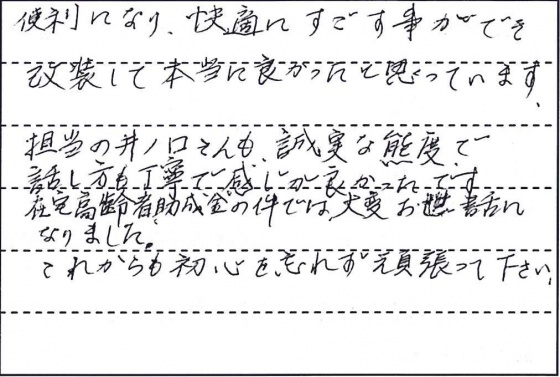 便利になり、快適にすごす事ができ
改装して本当に良かったと思っています。
担当の井ノ口さんも、誠実な態度で
話し方も丁寧で感じが良かったです
在宅高齢者助成金の件では大変お世話に
なりました。
これからも初心を忘れず頑張って下さい。